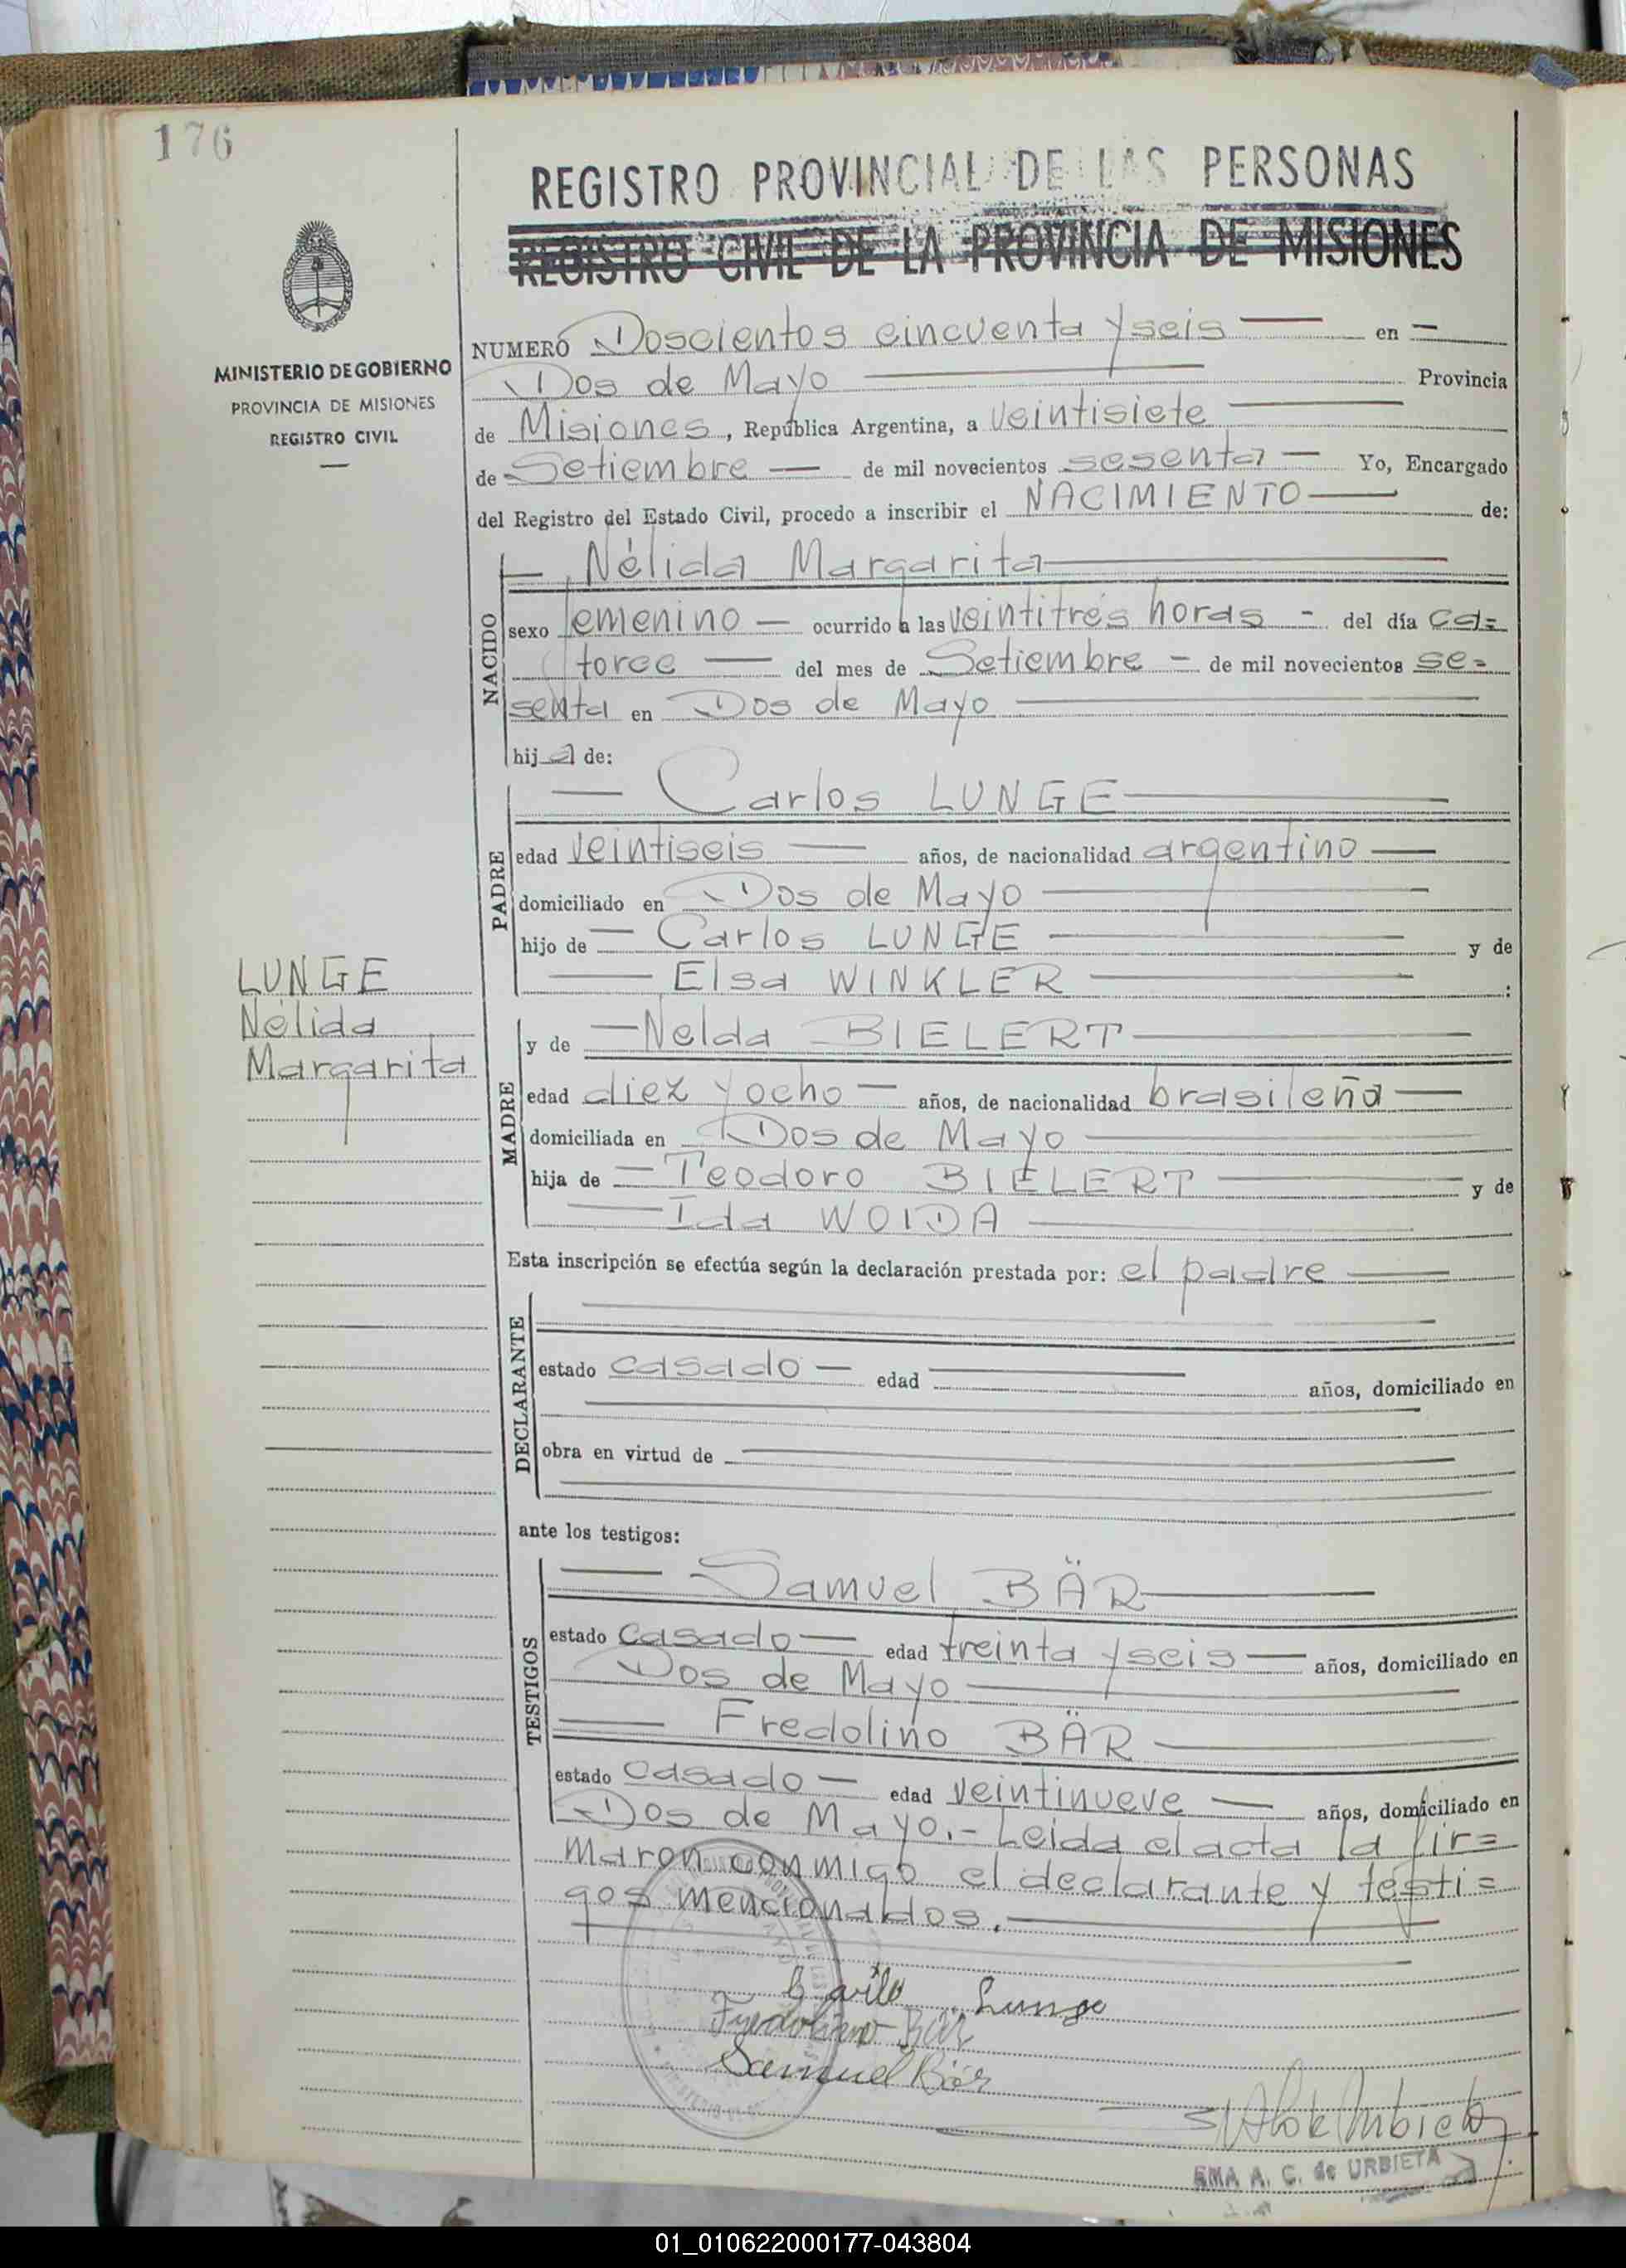 176
REGISTRO PROVINCIAL DE LAS PERSONAS
REGISTRO CIVIL DE LA PROVINCIA DE MISIONES
MINISTERIO DE GOBIERNO
PROVINCIA DE MISIONES
REGISTRO CIVIL
NUMERO Doscientos cincuenta y seis — en —
Dos de Mayo — Provincia
de Misiones, República Argentina, a veintisiete —
de Setiembre — de mil novecientos sesenta — Yo, Encargado
del Registro del Estado Civil, procedo a inscribir el NACIMIENTO — de:
NACIDO
— Nélida Margarita —
sexo femenino — ocurrido a las veintitrés horas - del día ca=
torce — del mes de Setiembre - de mil novecientos se=
senta en Dos de Mayo —
hija de:
PADRE
— Carlos LUNGE —
edad veintiseis — años, de nacionalidad argentino —
domiciliado en Dos de Mayo —
hijo de — Carlos LUNGE — y de
— Elsa WINKLER — :
LUNGE
Nélida
Margarita
MADRE
y de — Nelda BIELERT —
edad diez y ocho — años, de nacionalidad brasileña —
domiciliada en Dos de Mayo —
hija de — Teodoro BIELERT — y de
— Ida WOIDA —
Esta inscripción se efectúa según la declaración prestada por: el padre —
DECLARANTE
estado casado — edad — años, domiciliado en
obra en virtud de —
ante los testigos:
TESTIGOS
— Samuel BÄR —
estado casado — edad treinta y seis — años, domiciliado en
Dos de Mayo —
— Fredolino BÄR —
estado casado — edad veintinueve — años, domiciliado en
Dos de Mayo.- Leida el acta la fir=
maron conmigo el declarante y testi=
gos mencionados. —
Carlo Lunge
Fredolino Bär
Samuel Bär
EMA A. C. de URBIETA
01_010622000177-043804